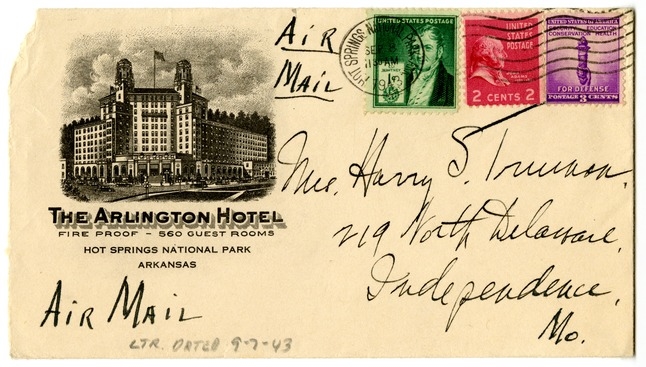 AIR
MAIL
HOT SPRINGS NATIONAL PARK
SEP
11 AM
1943
UNITED STATES POSTAGE
1¢
UNITED
STATES
POSTAGE
2 CENTS 2
UNITED STATES OF AMERICA
SECURITY EDUCATION
CONSERVATION HEALTH
FOR DEFENSE
POSTAGE 3 CENTS
THE ARLINGTON HOTEL
FIRE PROOF – 560 GUEST ROOMS
HOT SPRINGS NATIONAL PARK
ARKANSAS
Mrs. Harry S. Truman,
219 North Delaware,
Independence,
Mo.
AIR MAIL
LTR. DATED 9-7-43